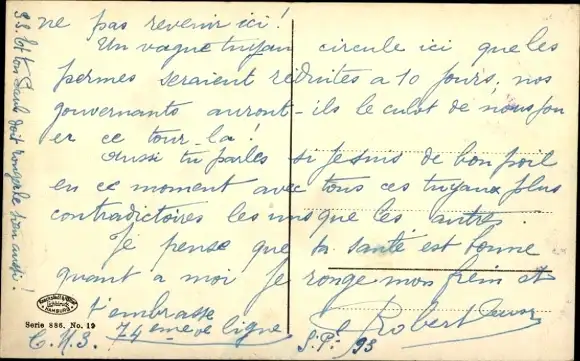 ne pas revenir ici !
Un vague tuyau circule ici que les
permes seraient réduites a 10 jours, nos
gouvernants auront-ils le culot de nous jou
er ce tour-la !
Aussi tu parles si je suis de bon poil
en ce moment avec tous ces tuyaux plus
contradictoires les uns que les autres.
Je pense que ta santé est bonne
quant a moi je ronge mon frein et
t'embrasse
Robert
74eme ligne S.P. 93
C.M.3.
Serie 886. No. 19
HAMBURG
doit ronger le sien aussi !